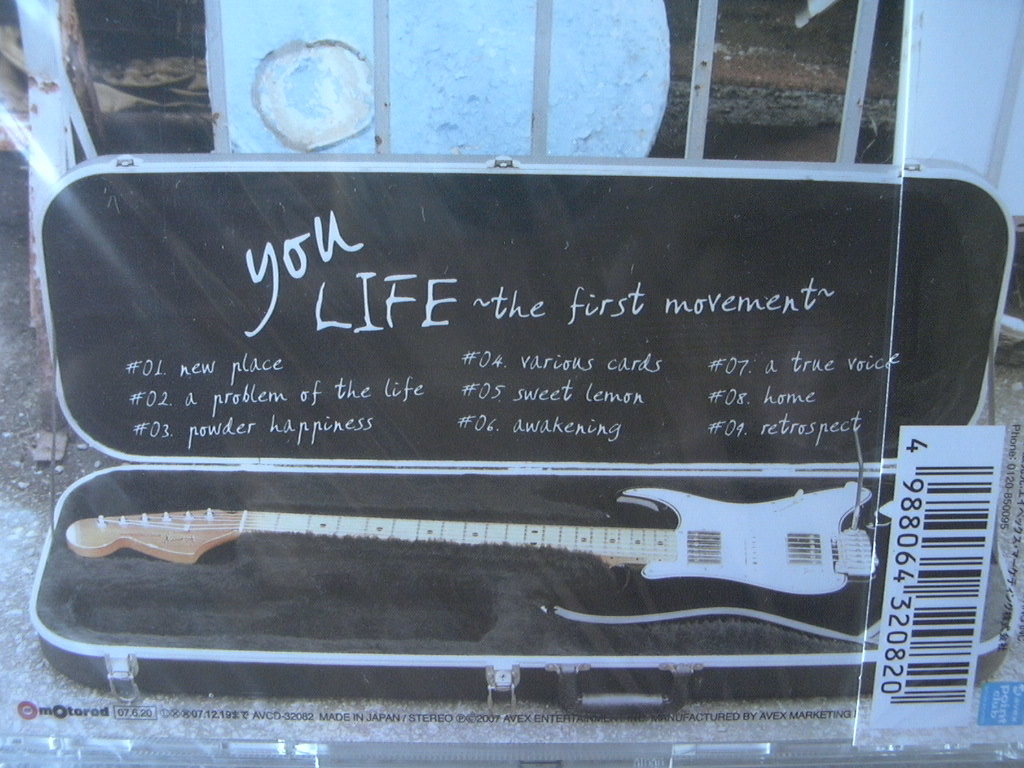 you
LIFE ~the first movement~
#01. new place
#02. a problem of the life
#03. powder happiness
#04. various cards
#05 sweet lemon
#06. awakening
#07. a true voice
#08. home
#09. retrospect
4 988064 320820
Phone: 0120-850095
motorod 07.6.20 07.12.19まで AVCD-32082 MADE IN JAPAN / STEREO ℗©2007 AVEX ENTERTAINMENT INC. MANUFACTURED BY AVEX MARKETING